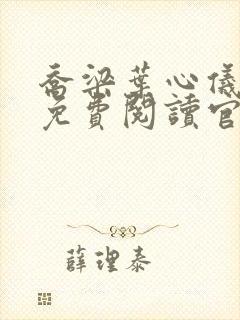 喬梁葉心儀
免費閱讀官
薛理泰